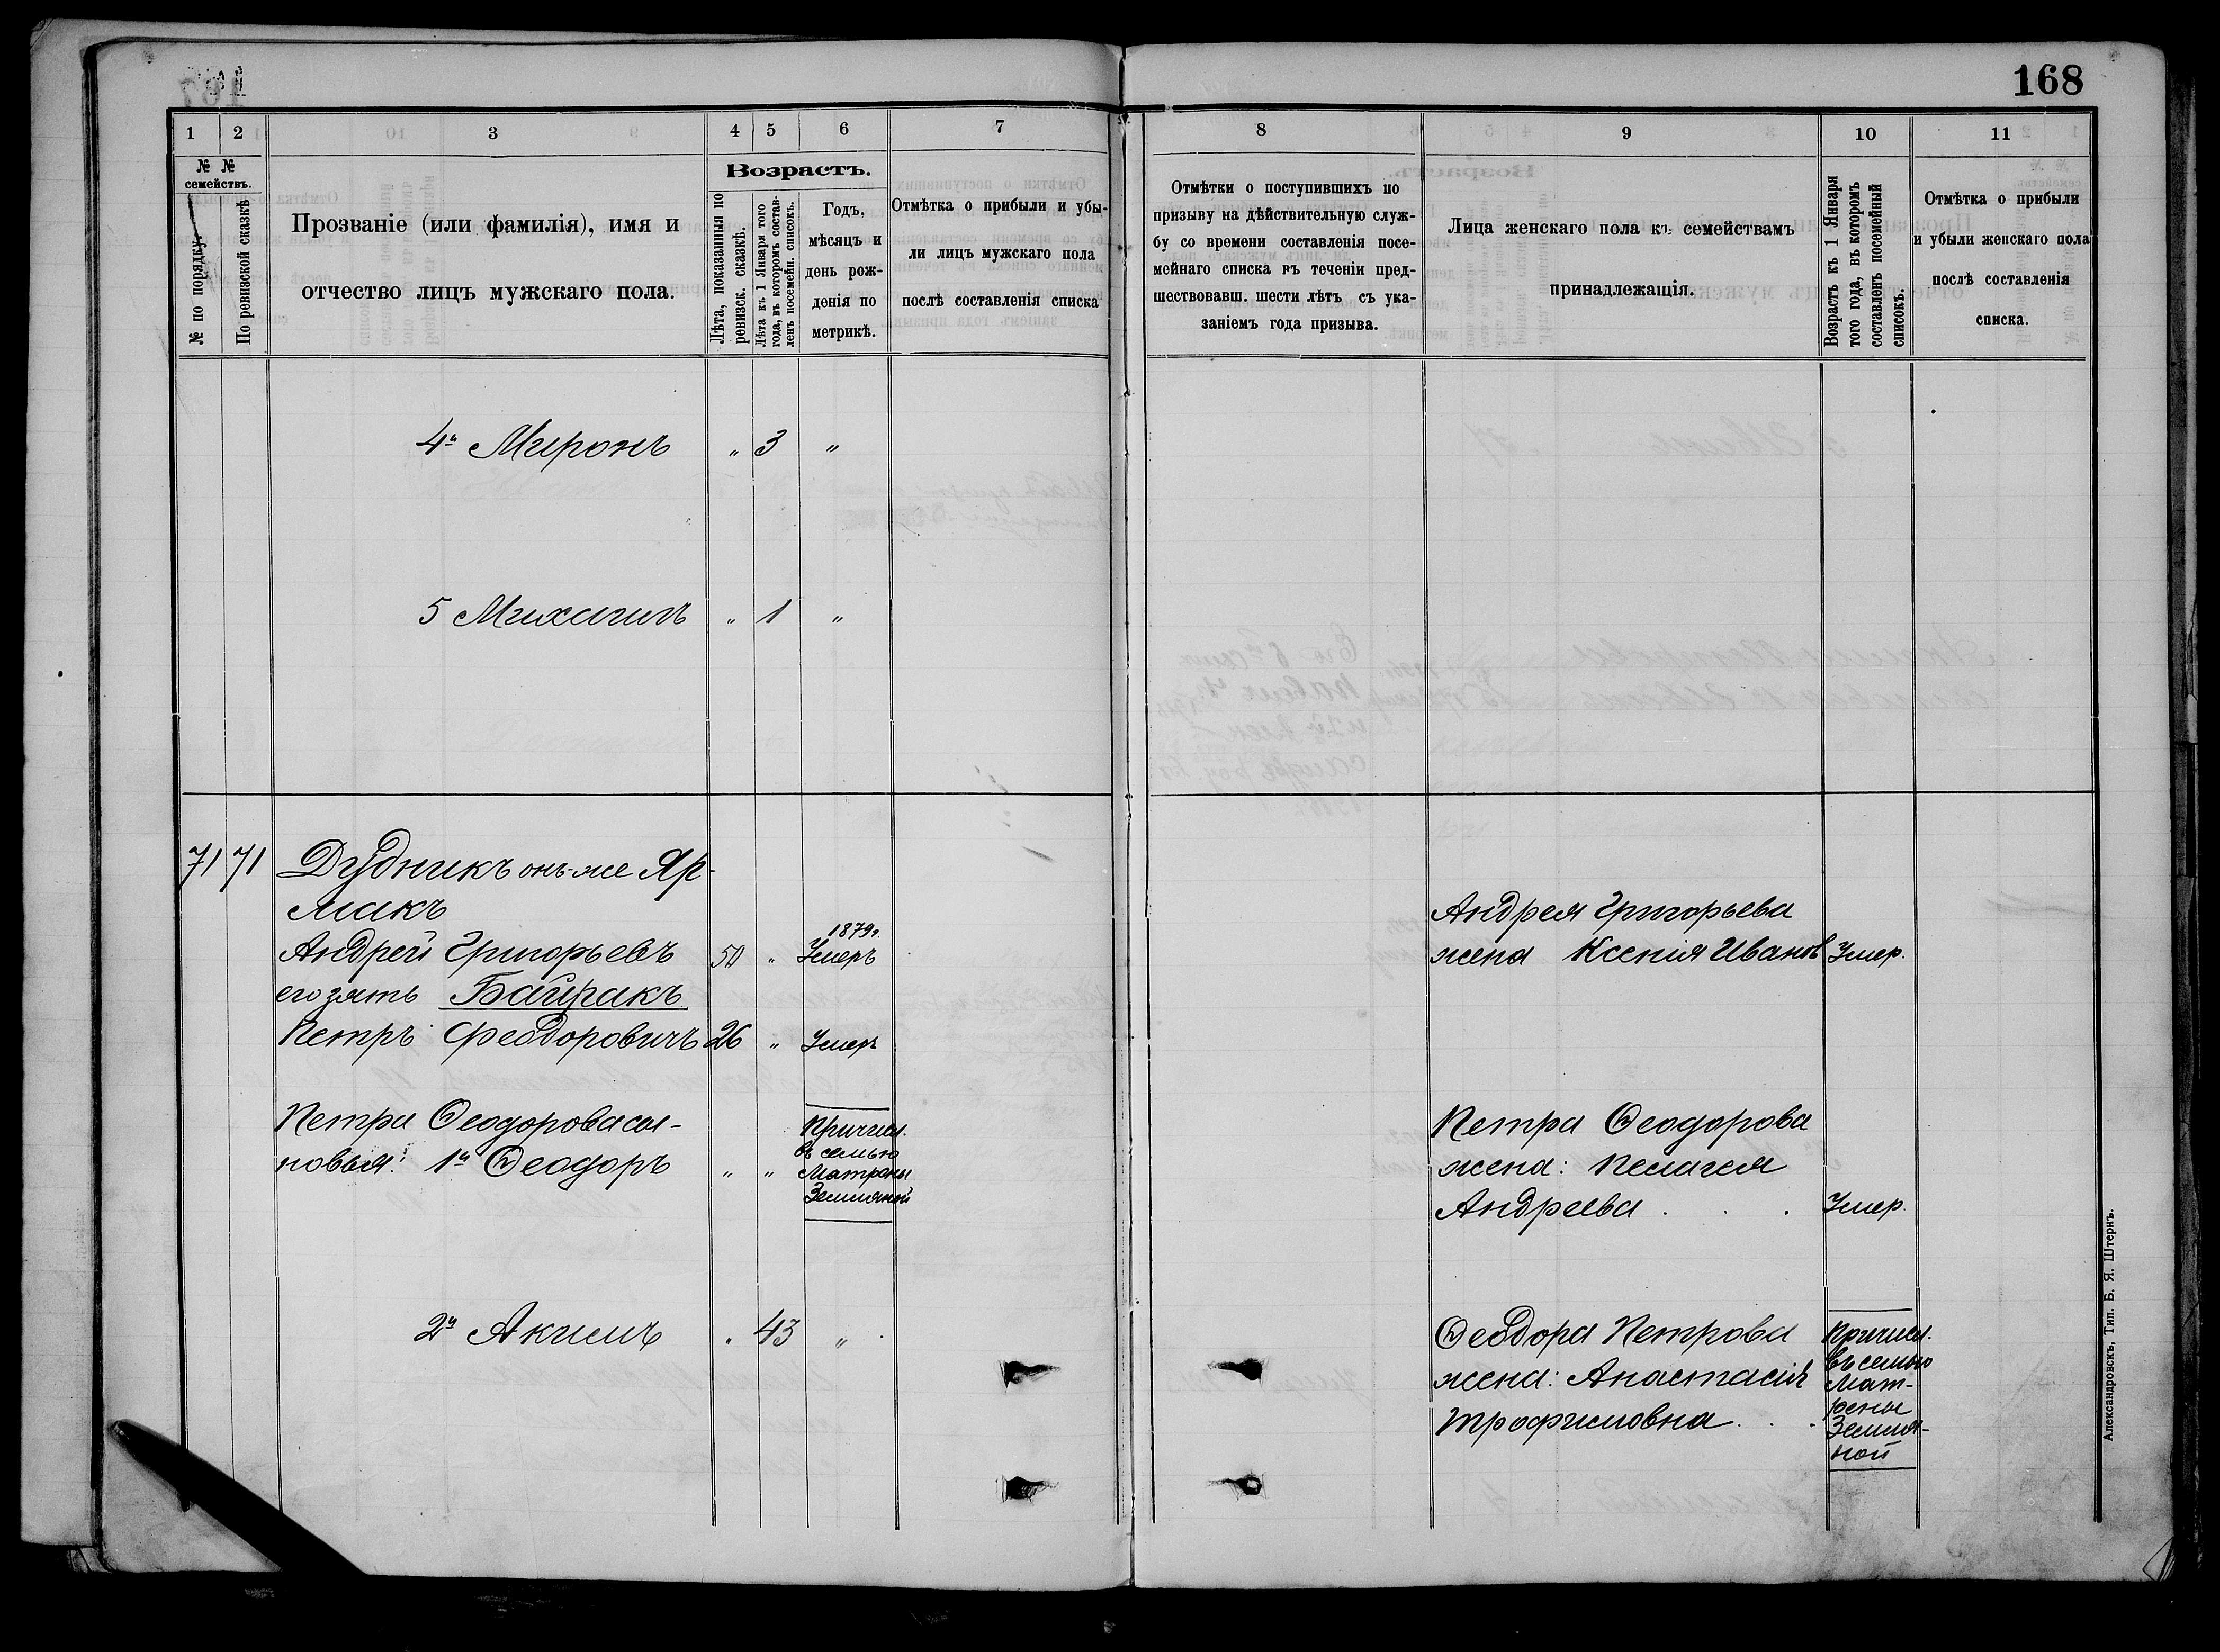 168
1 2 3 4 5 6 7
№ № семействъ.
№ по порядку.
По ревизской сказкѣ
Прозваніе (или фамилія), имя и
отчество лицъ мужскаго пола.
Возрастъ.
Лѣта, показанныя по
ревизск. сказкѣ.
Лѣта къ 1 Января того
года, въ которомъ состав-
ленъ посемейн. списокъ.
Годъ,
мѣсяцъ и
день рож-
денія по
метрикѣ.
Отмѣтка о прибыли и убы-
ли лицъ мужскаго пола
послѣ составленія списка
4й Миронъ " 3 "
5 Михаилъ " 1 "
71 71 Дудникъ онъ-же Яр-
макъ
1879г.
Андрей Григорьевъ 50 " Умеръ
его зять Байракъ
Петръ Феодоровичъ 26 " Умеръ
Петра Ѳеодорова сы-
новья: 1й Ѳеодоръ " "
Причисл.
въ семью
Матрены
Земляной
2й Акимъ " 43 "
8 9 10 11
Отмѣтки о поступившихъ по
призыву на дѣйствительную служ-
бу со времени составленія посе-
мейнаго списка въ теченіи пред-
шествовавш. шести лѣтъ съ ука-
заніемъ года призыва.
Лица женскаго пола къ семействамъ
принадлежащія.
Возрастъ къ 1 Января
того года, въ которомъ
составленъ посемейный
списокъ.
Отмѣтка о прибыли
и убыли женскаго пола
послѣ составленія
списка.
Андрея Григорьева
жена Ксенія Иванов Умер.
Петра Ѳеодорова
жена: Пелагея
Андреева . . . Умер.
Ѳеодора Петрова
жена: Анастасія
Трофимовна . . .
Причисл.
въ семью
Мат-
рены
Земля-
ной
Александровскъ, Тип. Б. Я. Штернъ.